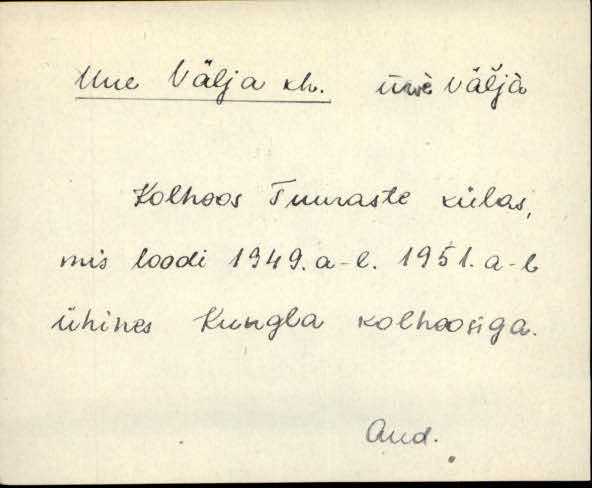 Uue Välja kh. ūwè väl̆jà
Kolhoos Tuuraste külas,
mis loodi 1949. a-l. 1951. a-l
ühines Kungla kolhoosiga.
And.